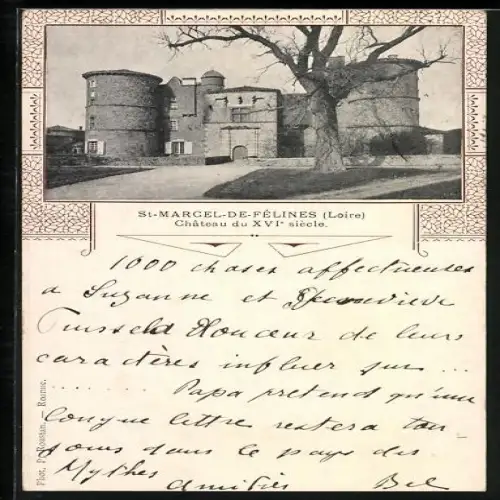 St-MARCEL-DE-FÉLINES (Loire)
Château du XVIe siècle.
1000 choses affectueuses
a Suzanne et Geneviève
Puisse la douceur de leurs
caractères influer sur ...
........ Papa prétend qu'une
longue lettre restera tou
jours dans le pays des
Mythes
Amitiés Bel
Phot. P. Roustan. — Roanne.